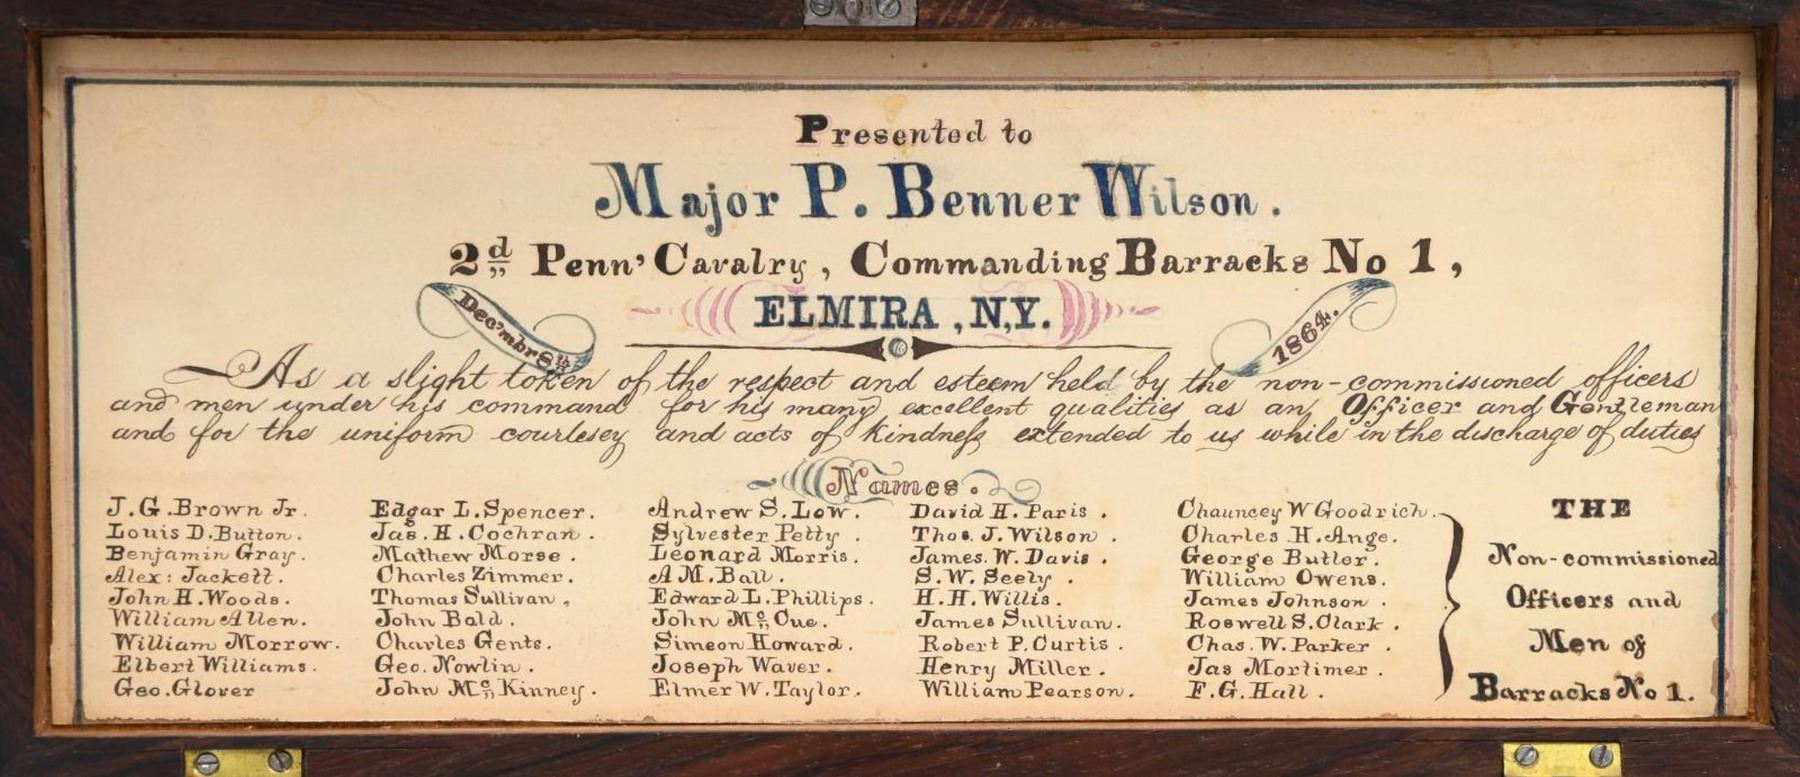 Presented to
Major P. Benner Wilson.
2d Penn' Cavalry, Commanding Barracks No 1,
ELMIRA, N.Y.
Dec'mbr 8th 1864.
As a slight token of the respect and esteem held by the non-commissioned officers
and men under his command for his many excellent qualities as an Officer and Gentleman
and for the uniform courtesey and acts of kindness extended to us while in the discharge of duties
Names.
J. G. Brown Jr.
Louis D. Button.
Benjamin Gray.
Alex: Jackett.
John H. Woods.
William Allen.
William Morrow.
Elbert Williams.
Geo. Glover
Edgar L. Spencer.
Jas. H. Cochran.
Mathew Morse.
Charles Zimmer.
Thomas Sullivan,
John Bold.
Charles Gents.
Geo. Nowlin.
John Mc Kinney.
Andrew S. Low.
Sylvester Petty.
Leonard Morris.
A M. Ball.
Edward L. Phillips.
John Mc Cue.
Simeon Howard.
Joseph Waver.
Elmer W. Taylor.
David H. Paris.
Thos. J. Wilson.
James. W. Davis.
S. W. Seely.
H. H. Willis.
James Sullivan.
Robert P. Curtis.
Henry Miller.
William Pearson.
Chauncey W Goodrich.
Charles H. Ange.
George Butler.
William Owens.
James Johnson.
Roswell S. Clark.
Chas. W. Parker.
Jas Mortimer.
F. G. Hall.
THE
Non-commissioned
Officers and
Men of
Barracks No 1.